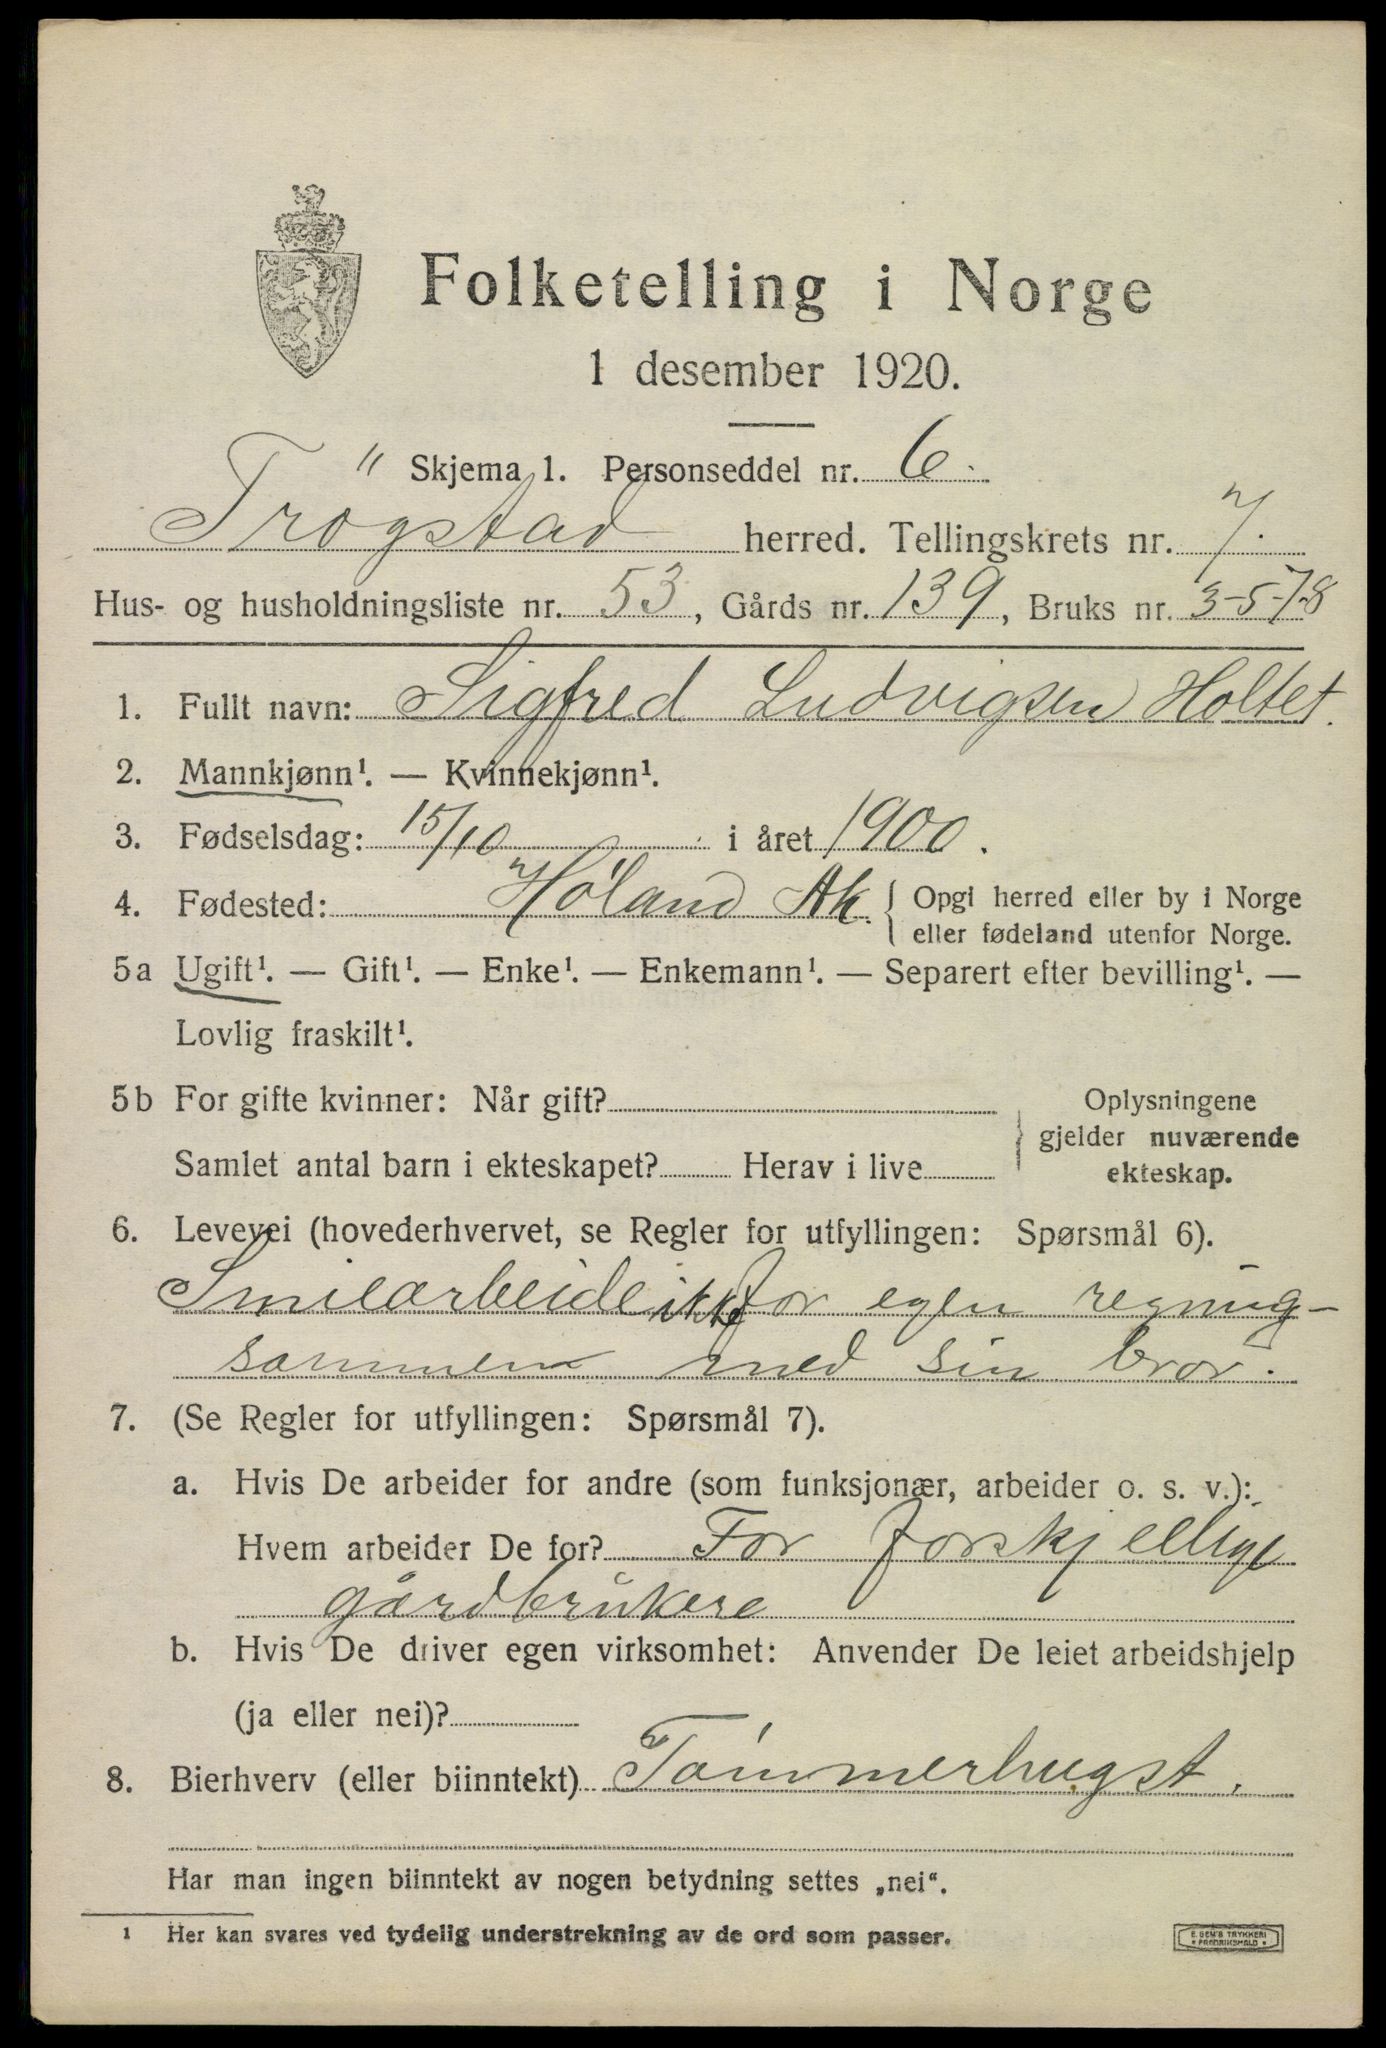 Folketelling i Norge
1 desember 1920.
Skjema 1. Personseddel nr. 6.
Trøgstad herred. Tellingskrets nr. 7.
Hus- og husholdningsliste nr. 53, Gårds nr. 139, Bruks nr. 3-5-7-8
1. Fullt navn: Sigfred Ludvigsen Holtet.
2. Mannkjønn¹. — Kvinnekjønn¹.
3. Fødselsdag: 15/10 i året 1900.
4. Fødested: Høland Ak. { Opgi herred eller by i Norge
eller fødeland utenfor Norge.
5a Ugift¹. — Gift¹. — Enke¹. — Enkemann¹. — Separert efter bevilling¹. —
Lovlig fraskilt¹.
5b For gifte kvinner: Når gift? } Oplysningene
gjelder nuværende
Samlet antal barn i ekteskapet? Herav i live
ekteskap.
6. Levevei (hovederhvervet, se Regler for utfyllingen: Spørsmål 6).
ikke for egen regning-
sammen med sin bror.
7. (Se Regler for utfyllingen: Spørsmål 7).
a. Hvis De arbeider for andre (som funksjonær, arbeider o. s. v.):
Hvem arbeider De for? For forskjellige
gårdbrukere
b. Hvis De driver egen virksomhet: Anvender De leiet arbeidshjelp
(ja eller nei)?
8. Bierhverv (eller biinntekt) Tømmerhugst.
Har man ingen biinntekt av nogen betydning settes „nei“.
¹ Her kan svares ved tydelig understrekning av de ord som passer.
E. SEM'S TRYKKERI
• FREDRIKSHALD •